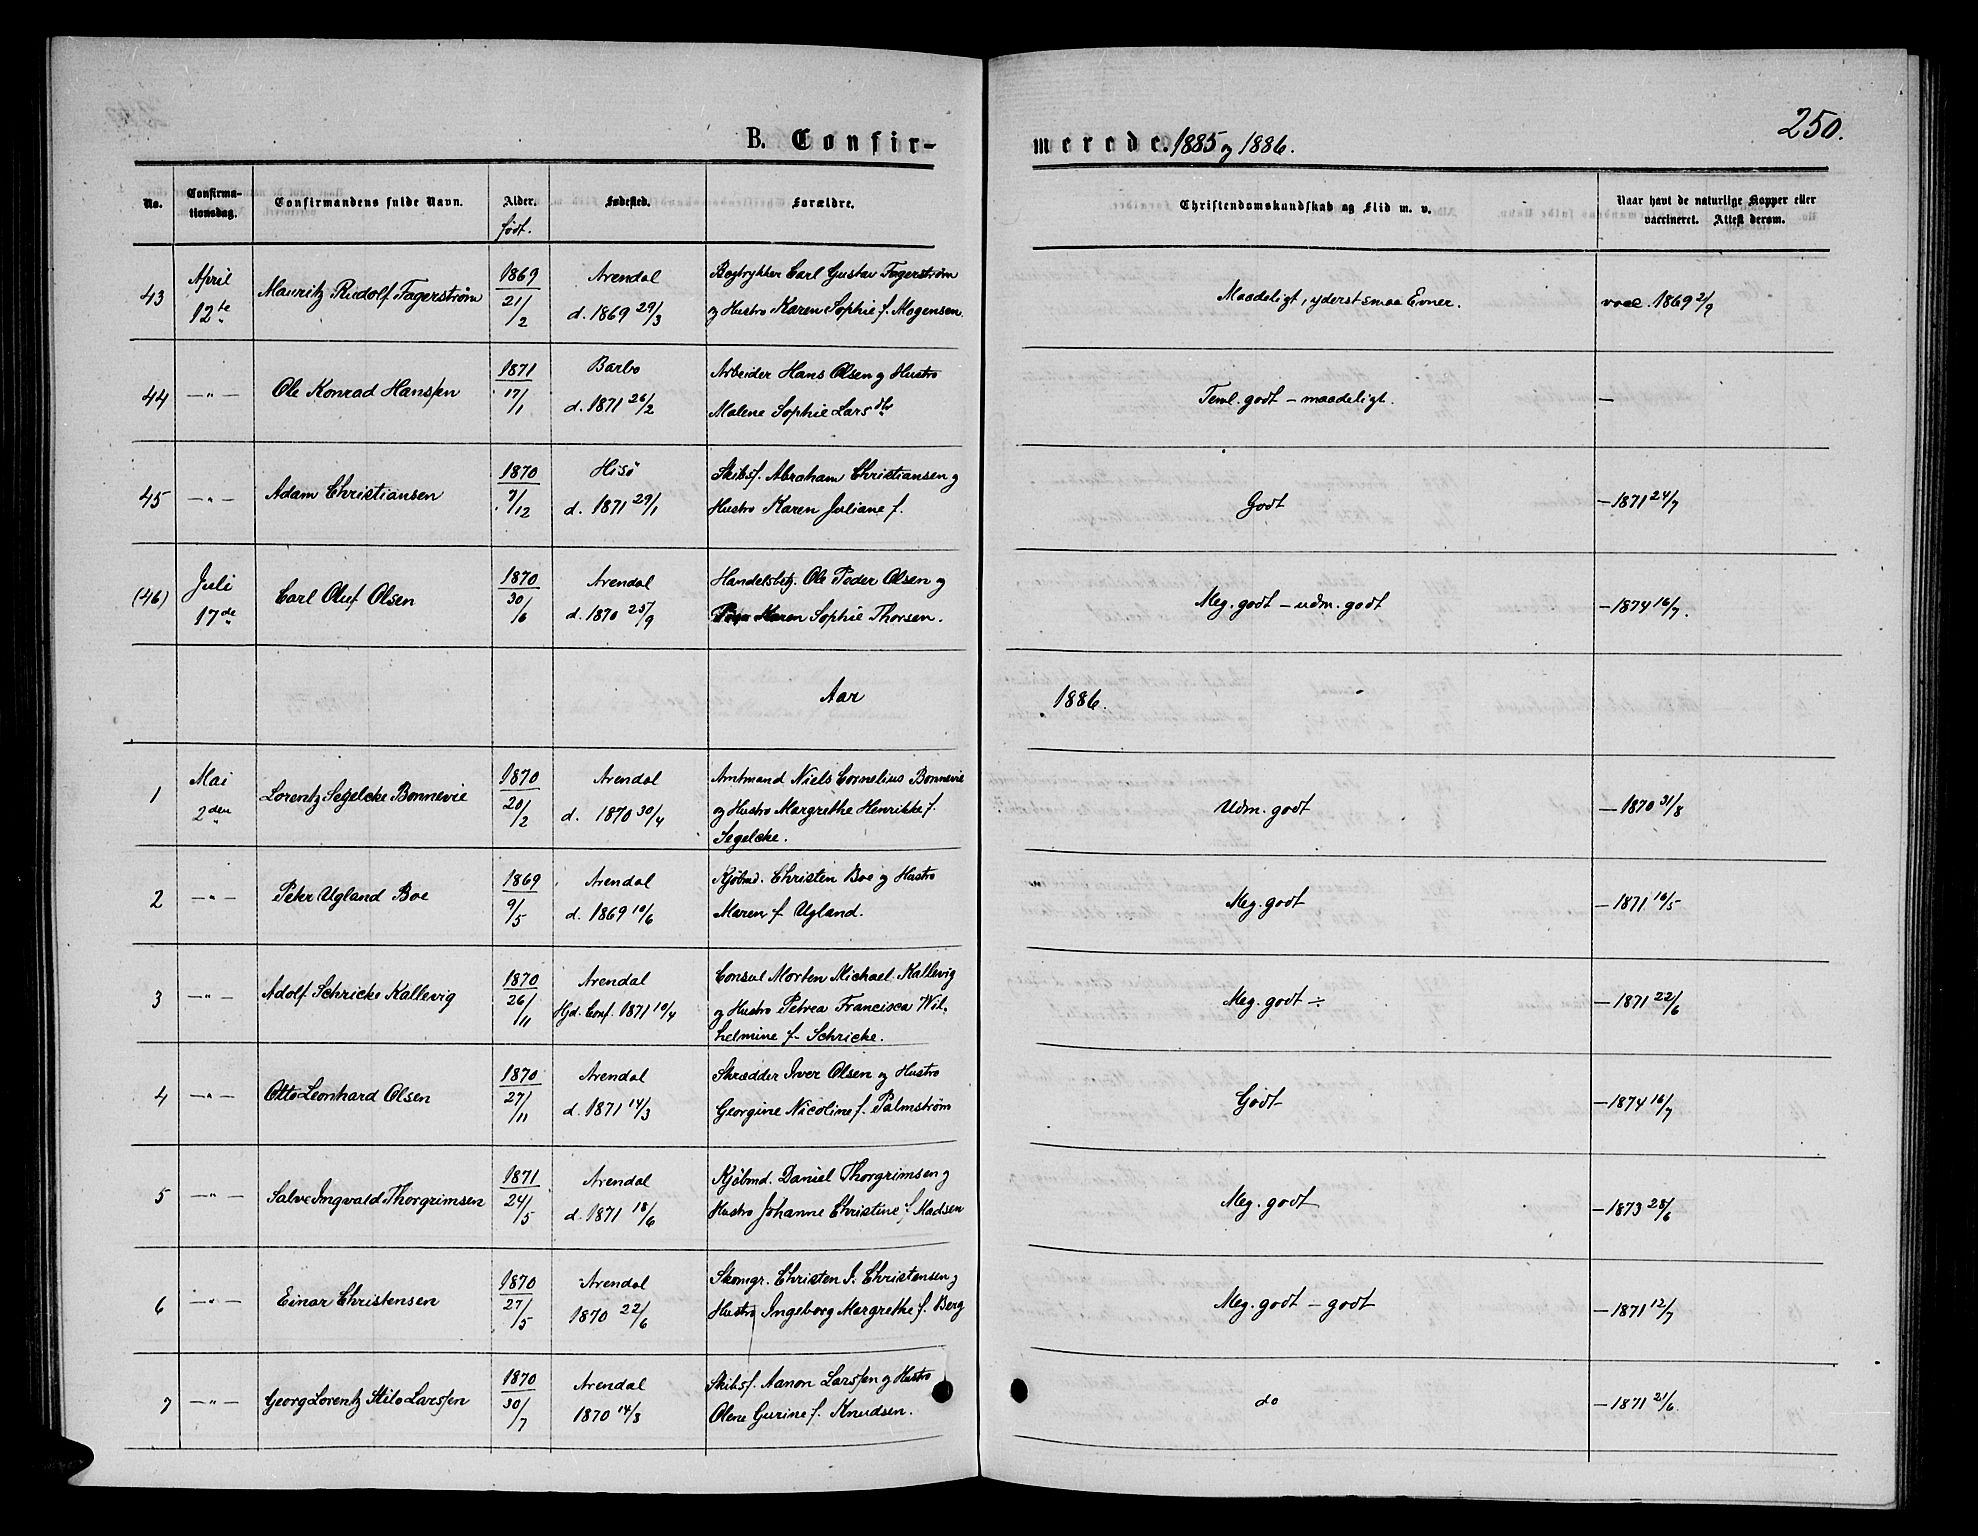 250.
B. Confirmerede. 1885 og 1886.
No.
Confirmationsdag.
Confirmandens fulde Navn.
Alder.
født.
Fødested.
Forældre.
Christendomskundskab og Flid m. v.
Naar havt de naturlige Kopper eller
vaccineret. Attest derom.
43 April 12te Mauritz Rudolf Fagerstrøm 1869 21/2 Arendal d. 1869 29/3
Bogtrykker Carl Gustav Fagerstrøm
og Hustro Karen Sophie f. Mogensen.
Maadeligt, yderst smaa Evner. vacc. 1869 2/9
44 —"— Ole Konrad Hanssen 1871 17/1 Barbo d. 1871 26/2
Arbeider Hans Olsen og Hustro
Malene Sophie Larsdtr
Teml. godt – maadeligt. —
45 —"— Adam Christiansen 1870 7/12 Hisö d. 1871 29/1
Skibsf. Abraham Christiansen og
Hustro Karen Juliane f.
Godt — 1871 24/7
(46) Juli 17de Carl Oluf Olsen 1870 30/6 Arendal d. 1870 25/9
Handelsbetj. Ole Peder Olsen og
Maren Sophie Thorsen.
Meg. godt – udm. godt — 1874 16/7.
Aar 1886.
1 Mai 2den Lorentz Segelcke Bonnevie 1870 20/2 Arendal d. 1870 30/4
Amtmand Niels Cornelius Bonnevie
og Hustro Margrethe Henrikke f.
Segelcke.
Udm. godt — 1870 31/8
2 —"— Peter Ugland Boe 1869 9/5 Arendal d. 1869 10/6
Kjøbmd. Christen Boe og Hustro
Maren f. Ugland.
Meg. godt — 1871 10/5
3 —"— Adolf Schricke Kallevig 1870 26/11 Arendal Hjd. Conf. 1871 10/4
Consul Morten Michael Kallevig
og Hustro Petrea Francisca Wil-
helmine f. Schricke.
Meg. godt ÷ — 1871 22/6
4 —"— Otto Leonhard Olsen 1870 27/11 Arendal d. 1871 14/3
Skrædder Iver Olsen og Hustro
Georgine Nicoline f. Palmstrøm
Godt — 1874 16/7
5 —"— Salve Ingvald Thorgrimsen 1871 24/5 Arendal d. 1871 18/6
Kjöbmd. Daniel Thorgrimsen og
Hustro Johanne Christine f. Madsen
Meg. godt — 1873 28/6
6 —"— Einar Christensen 1870 27/5 Arendal 1870 22/6
Skomgr. Christen S. Christensen og
Hustro Ingeborg Margrethe f. Berg
Meg. godt – godt — 1871 12/7
7 —"— Georg Lorentz Stilo Larssen 1870 30/7 Arendal 1870 14/8
Skibsf. Aanon Larssen og Hustro
Olene Gurine f. Knudsen.
do — 1871 21/6.